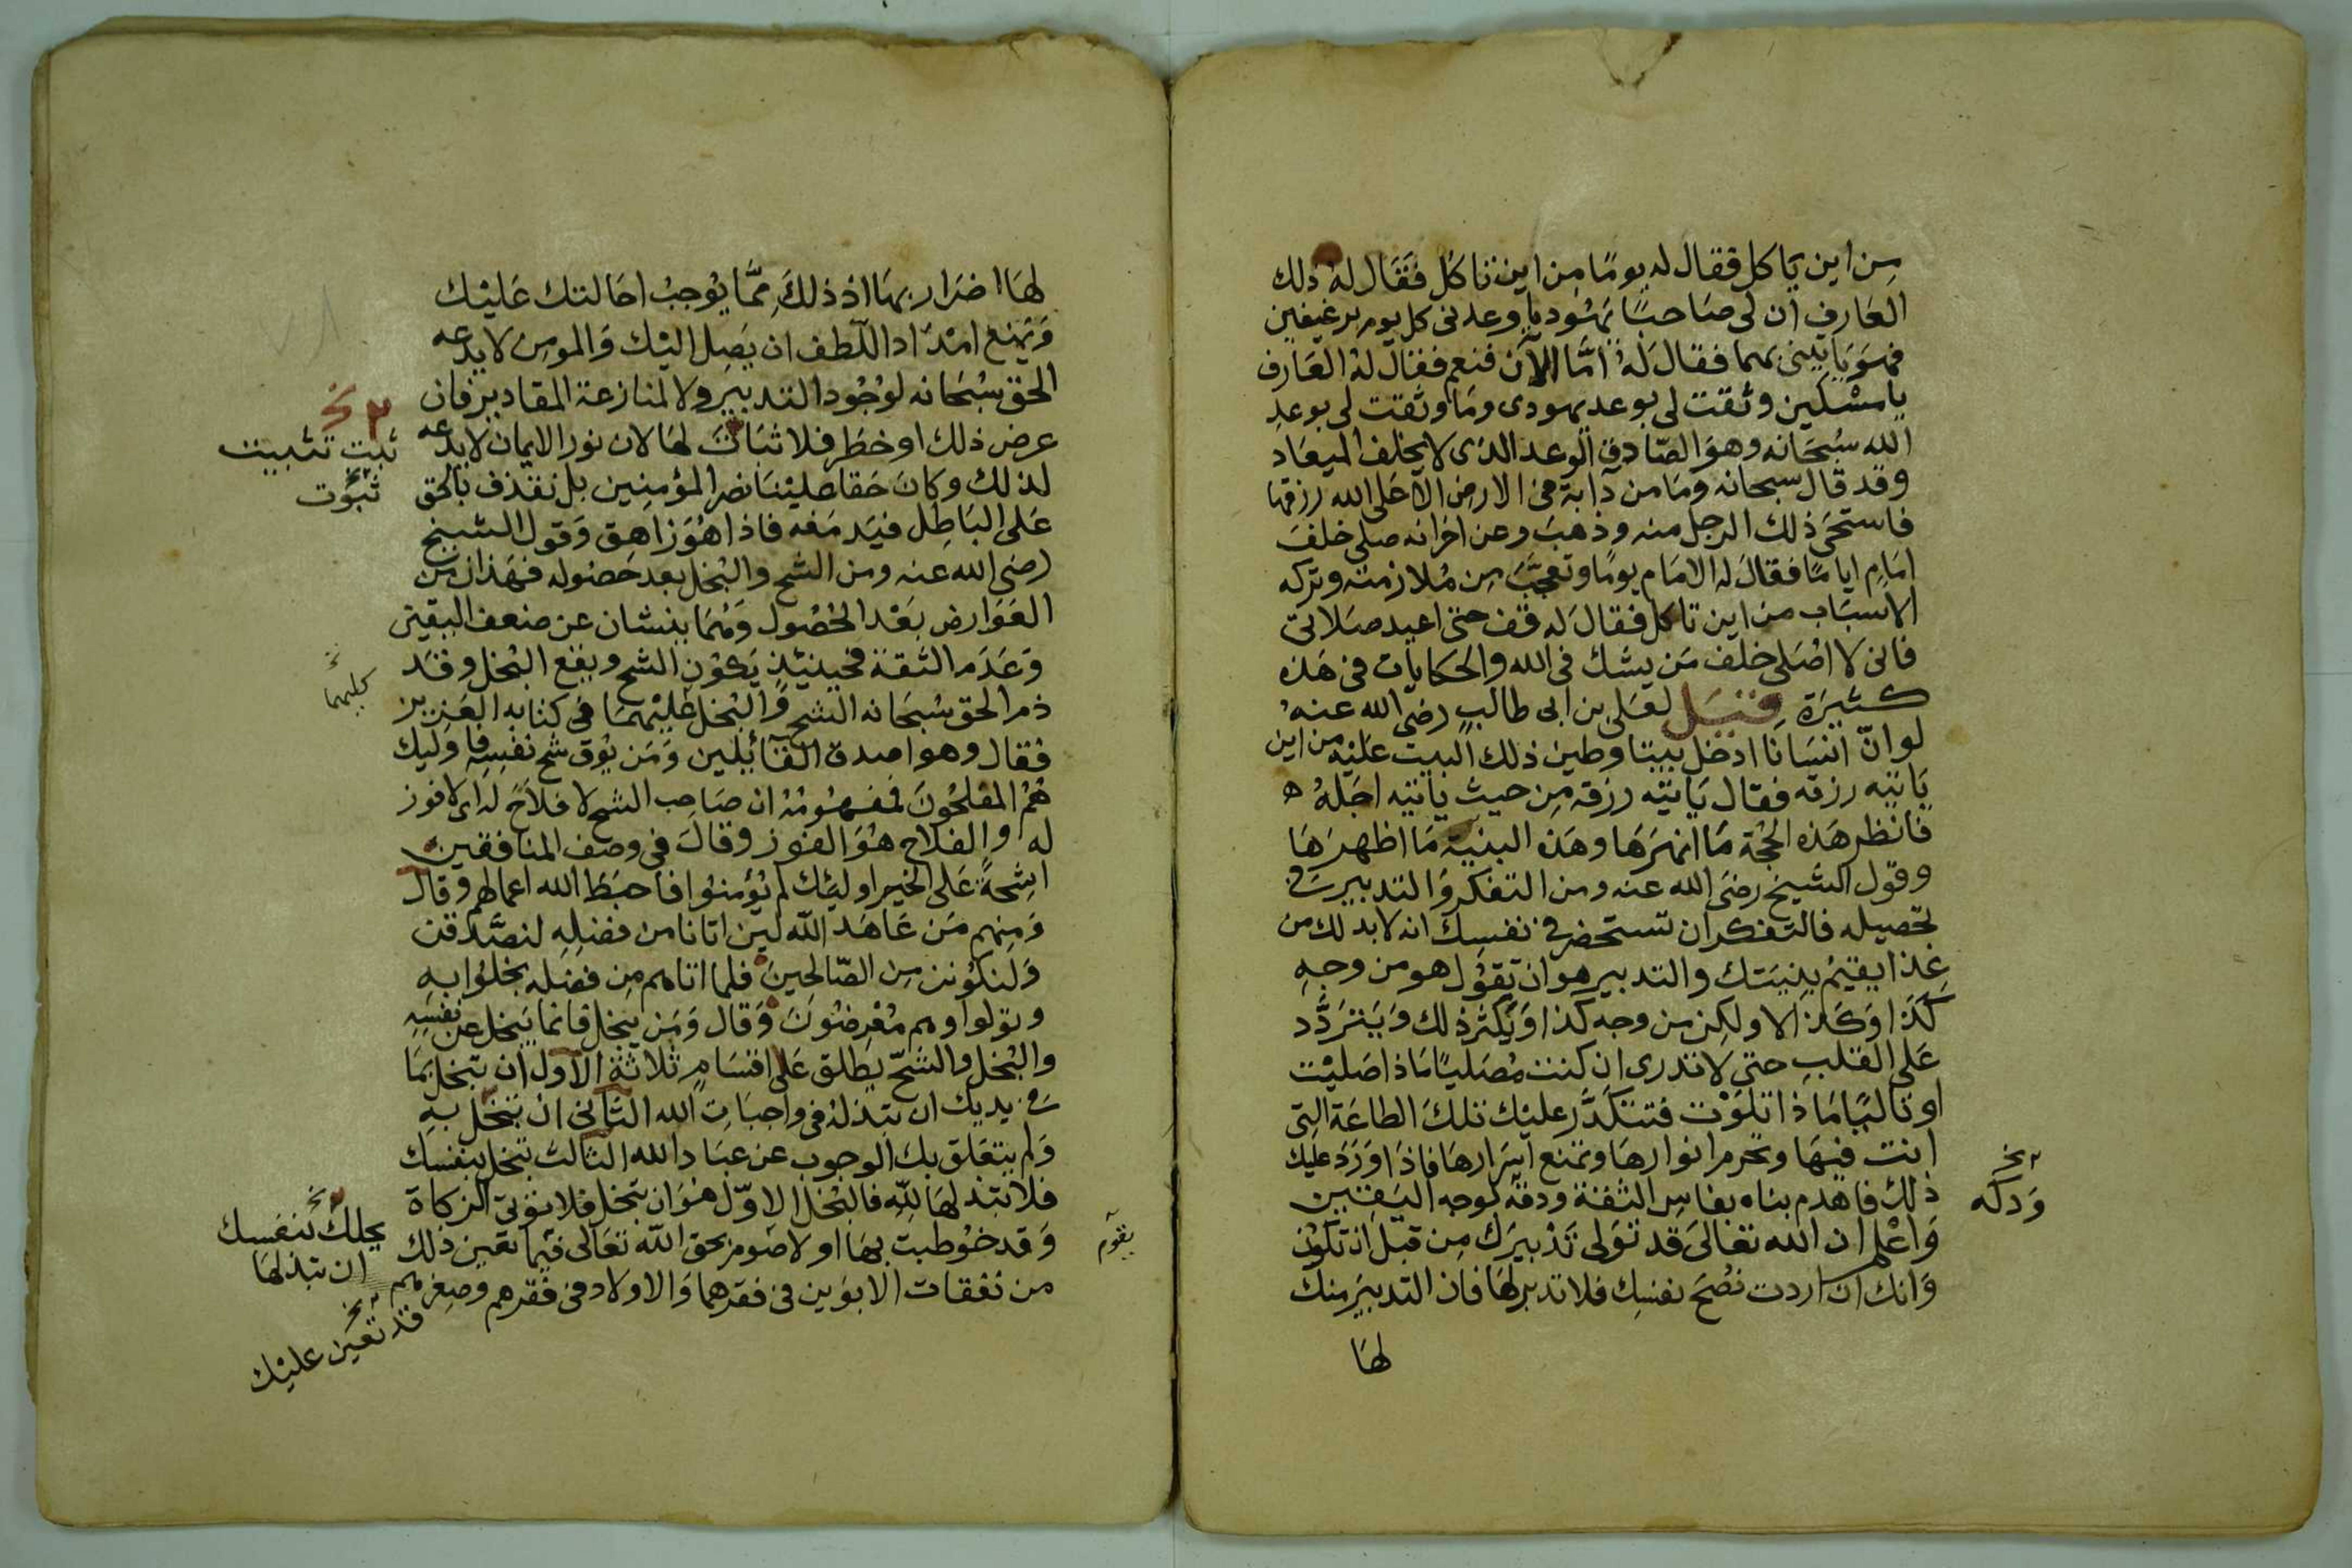 من اين ياكل فقال له يومًا من اين تاكل فقال له ذلك
العارف ان لى صاحبًا يهوديا وعدنى كل يوم برغيفين
فهو ياتينى بهما فقال له امّا الآن فنعم فقال له العارف
يا مسكين وثقت لى بوعد يهودى وما وثقت لى بوعد
الله سبحانه وهو الصّادق الوعد الذى لا يخلف الميعاد
وقد قال سبحانه وما من دآبة فى الارض الا على الله رزقها
فاستحى ذلك الرجل منه وذهب وعن اخر انه صلى خلف
امام اياما فقال له الامام يوما وتعجّب من ملازمته وتركه
الاسباب من اين تاكل فقال له قف حتى اعيد صلاتى
فانى لا اصلى خلف من يشك فى الله والحكايات فى هذه
كثيرة قيل لعلى بن ابى طالب رضى الله عنه
لو انّ انسانا ادخل بيتا وطين ذلك البيت عليه من اين
ياتيه رزقه فقال ياتيه رزقه من حيث ياتيه اجله ه
فانظر هذه الحجة ما انهرها وهذه البنية ما اظهرها
وقول الشيخ رضى الله عنه ومن التفكر والتدبير فى
تحصيله فالتفكر ان تستحضر فى نفسك انه لا بد لك من
غذا يقيم بنيتك والتدبير هو ان تقول هو من وجه
كذا او كذا لا ولكن من وجه كذا ويكثر ذلك ويتردّد
على القلب حتى لا تدرى ان كنت مصليًا ماذا صليت
او تاليًا ماذا تلوت فتتكدّر عليك تلك الطاعة التى
انت فيها وتحرم انوارها وتمنع اسرارها فاذا ورد عليك
ذلك فاهدم بناه بفاس الثقة ودقه لوجه اليقين
واعلم ان الله تعالى قد تولى تدبيرك من قبل ان تكون
وانك ان اردت نصح نفسك فلا تدبر لها فان التدبير منك
لها
نخ
ودكه
لها اضرار بها اذ ذلك ممّا يوجب احالتك عليك
ويمنع امداد اللطف ان يصل اليك والمومن لا يدعه
الحق سبحانه لوجود التدبير ولا لمنازعة المقادير فان
عرض ذلك او خطر فلا ثبات لها لان نور الايمان لا يدعه
لذلك وكان حقا علينا نصر المؤمنين بل نقذف بالحق
على الباطل فيدمغه فاذا هو زاهق وقول الشيخ
رضى الله عنه ومن الشح والبخل بعد حصوله فهذان من
العوارض بعد الحصول وهما ينشان عن ضعف اليقين
وعدم الثقة فحينئذ يكون الشح ويقع البخل وقد
ذم الحق سبحانه الشح والبخل عليهما فى كتابه العزيز
فقال وهو اصدق القائلين ومن يوق شح نفسه فاوليك
هم المفلحون فمفهومه ان صاحب الشح لا فلاح له اى لا فوز
له والفلاح هو الفوز وقال فى وصف المنافقين
اشحةً على الخير اوليك لم يؤمنوا فاحبط الله اعمالهم وقال
ومنهم من عاهد الله لين اتانا من فضله لنصّدقن
ولنكونن من الصّالحين فلما اتاهم من فضله بخلوا به
وتولوا وهم معرضون وقال ومن يبخل فانما يبخل عن نفسه
والبخل والشحّ يطلق على اقسام ثلاثة الاول ان تبخل بما
فى يديك ان تبذله فى واجبات الله الثانى ان تبخل به
ولم يتعلق بك الوجوب عن عباد الله الثالث تبخل بنفسك
فلا تبذلها لله فالبخل الاوّل هو ان تبخل فلا توتى الزكاة
وقد خوطبت بها او لا بحق الله تعالى فيما تعين ذلك
من نفقات الابوين فى فقرهما والاولاد فى فقرهم وصغرهم
نخ
ثبت تثبيت
ثبوت
كليهما
بخلك بنفسك
ان تبذلها
قد تعين عليك
يقوم